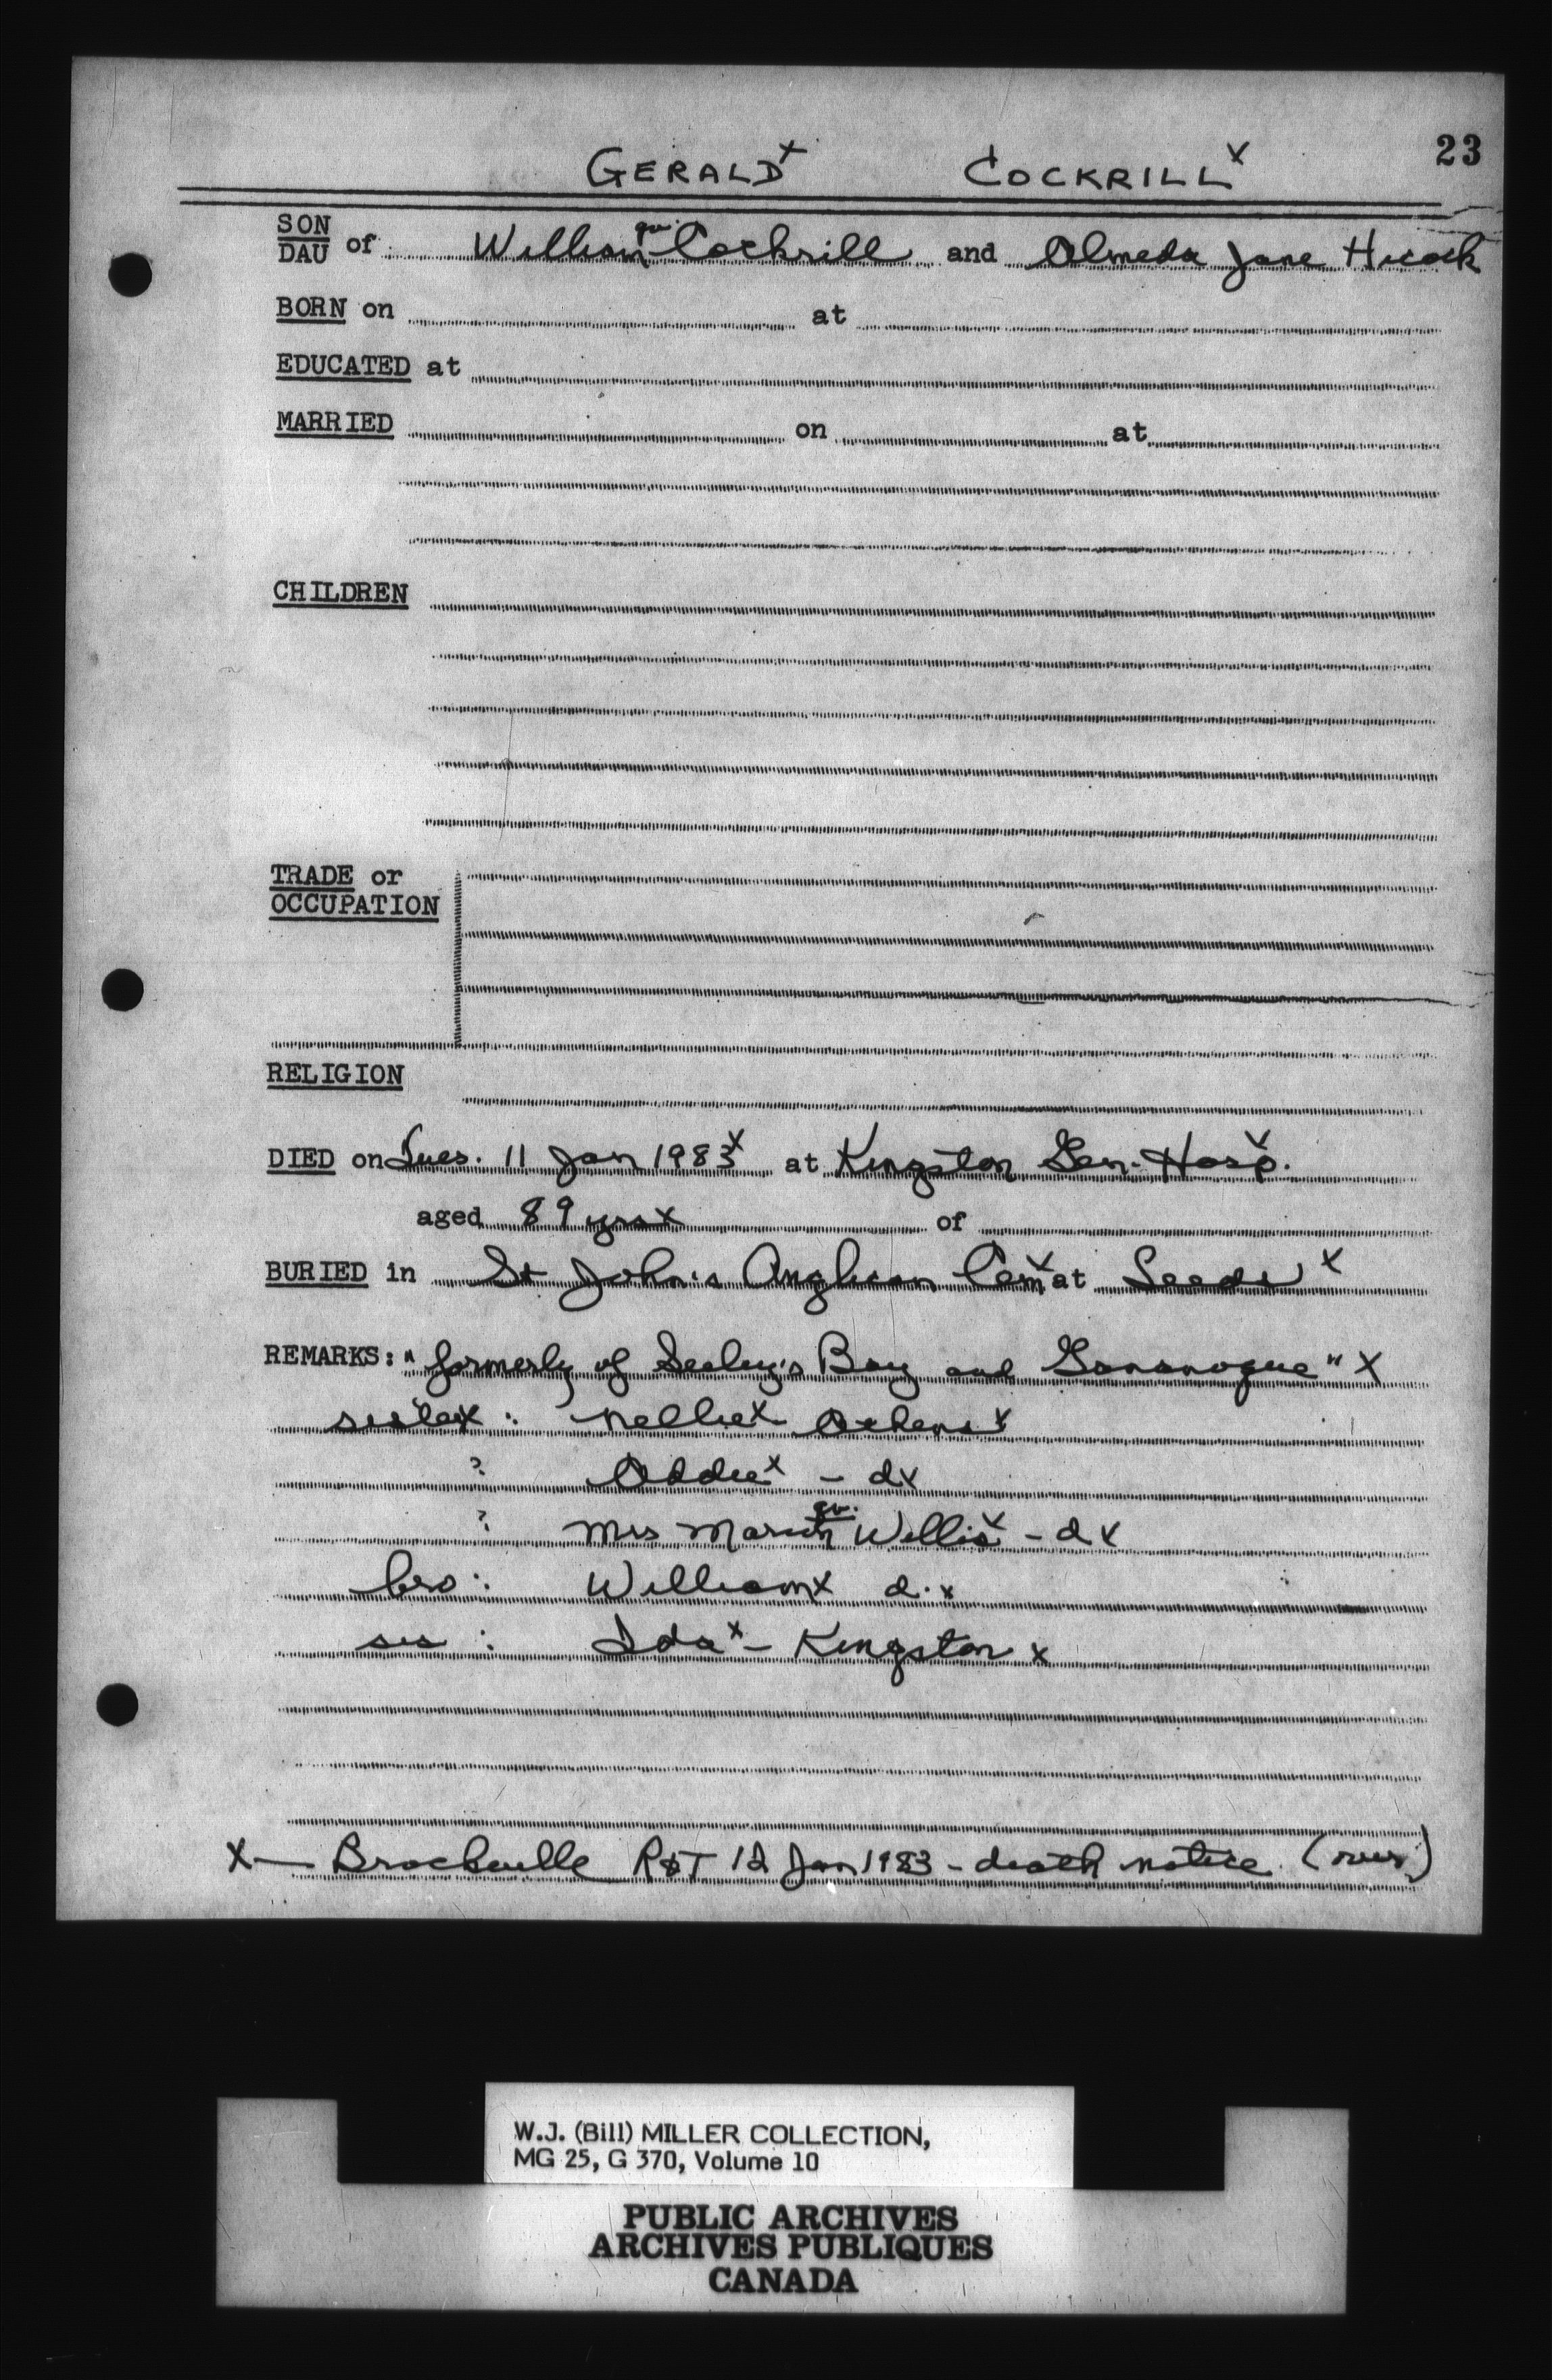 23
GERALD x COCKRILL x
SON
DAU of William qv. Cockrill and Almeda Jane Hicock
BORN on at
EDUCATED at
MARRIED on at
CHILDREN
TRADE or
OCCUPATION
RELIGION
DIED on Tues. 11 Jan 1983 x at Kingston Gen. Hosp. x
aged 89 yrs x of
BURIED in St John's Anglican Cem x at Leeds x
REMARKS: "formerly of Seeley's Bay and Gananoque" x
sister x : Nellie x Athens x
? Addie x - d x
? Mrs Marion qv. Willis x - d x
bro : William x d. x
sis : Ida x - Kingston x
x — Brockville R&T 12 Jan 1983 - death notice (over)
W.J. (Bill) MILLER COLLECTION,
MG 25, G 370, Volume 10
PUBLIC ARCHIVES
ARCHIVES PUBLIQUES
CANADA